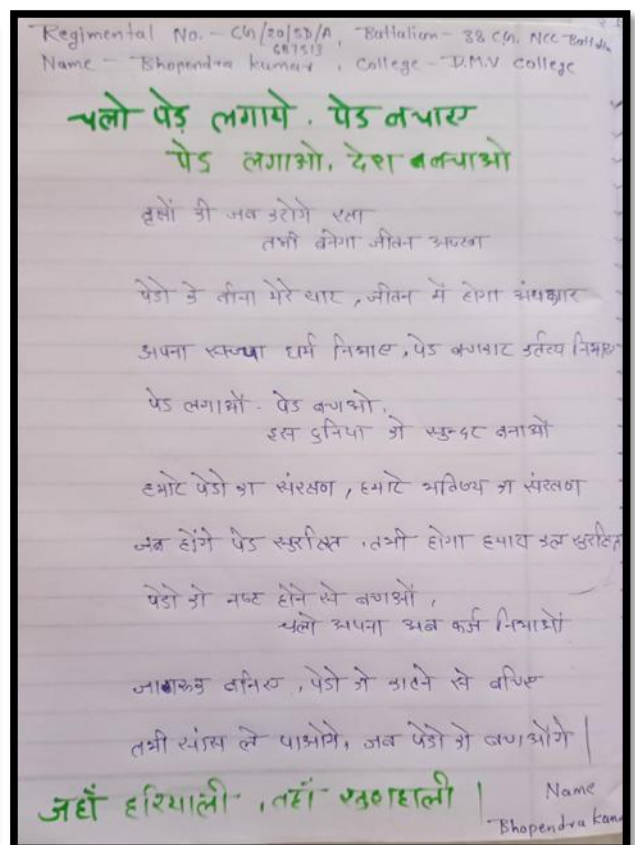 Regimental No. - CG/20/SD/A, Battalion - 38 CG. NCC Battalion
687513
Name - Bhopendra kumar, College - D.M.V College
चलो पेड़ लगाये. पेड बचाए
पेड लगाओ. देश बचाओ
वृक्षों की जब करोगे रक्षा
तभी बनेगा जीवन अच्छा
पेडो के बीना मेरे यार, जीवन में होगा अंधकार
अपना सच्चा धर्म निभाए, पेड बचाकर कर्तव्य निभाए
पेड लगाओं - पेड बचाओ.
इस दुनिया को सुन्दर बनाओं
हमारे पेडो का संरक्षण, हमारे भविष्य का संरक्षण
जब होंगे पेड सुरक्षित, तभी होगा हमारा कल सुरक्षित
पेडो को नष्ट होने से बचाओं,
चलो अपना अब कर्ज निभाओं
जागरूक बनिए, पेडो को काटने से बचिए
तभी सांस ले पाओगे, जब पेडो को बचाओगे |
जहाँ हरियाली, वहाँ खुशहाली |
Name
Bhopendra Kum